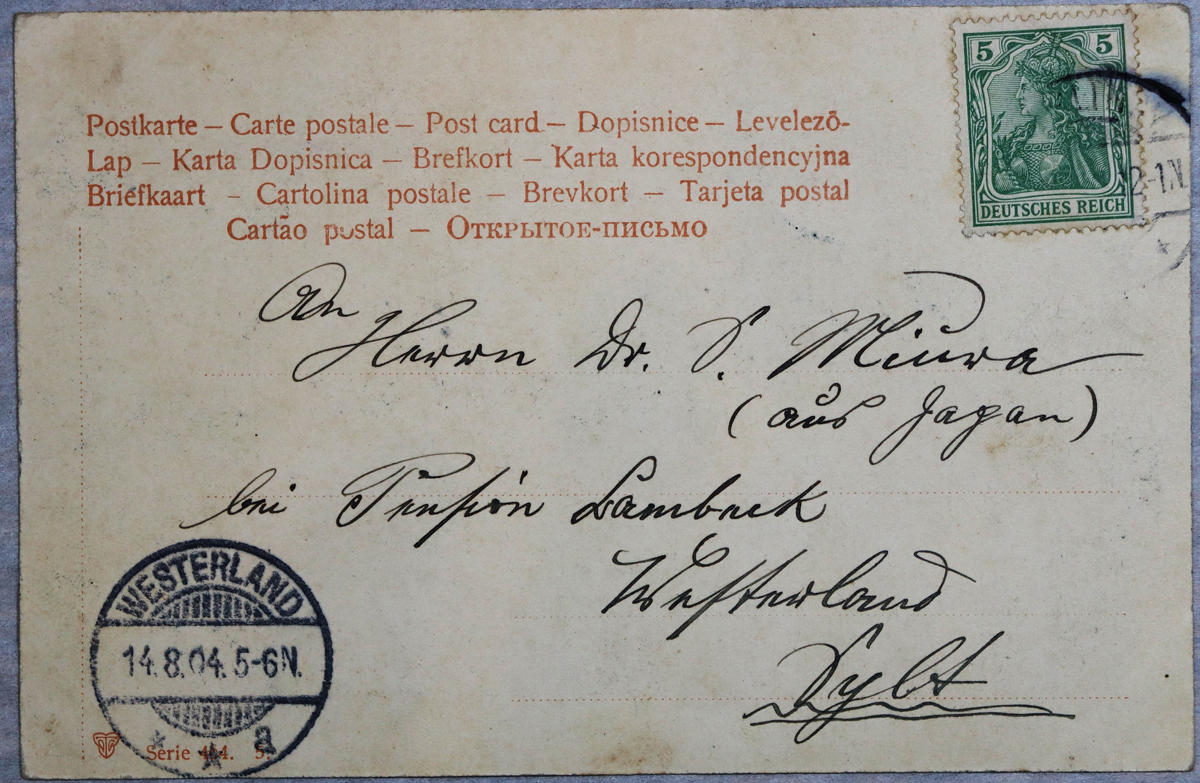 Postkarte – Carte postale – Post card – Dopisnice – Levelező-
Lap – Karta Dopisnica – Brefkort – Karta korespondencyjna
Briefkaart – Cartolina postale – Brevkort – Tarjeta postal
Cartão postal – Открытое-письмо
5 5
DEUTSCHES REICH
12-1N
An
Herrn Dr. S. Miura
(aus Japan)
bei Pension Lambeck
Westerland
Sylt
WESTERLAND
14.8.04.5-6N.
* * a
Serie